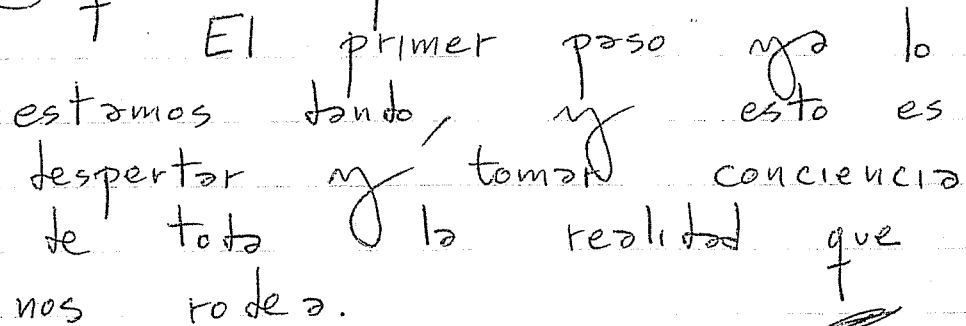 El primer paso ya lo
estamos dando, y esto es
despertar y tomar conciencia
de toda la realidad que
nos rodea.